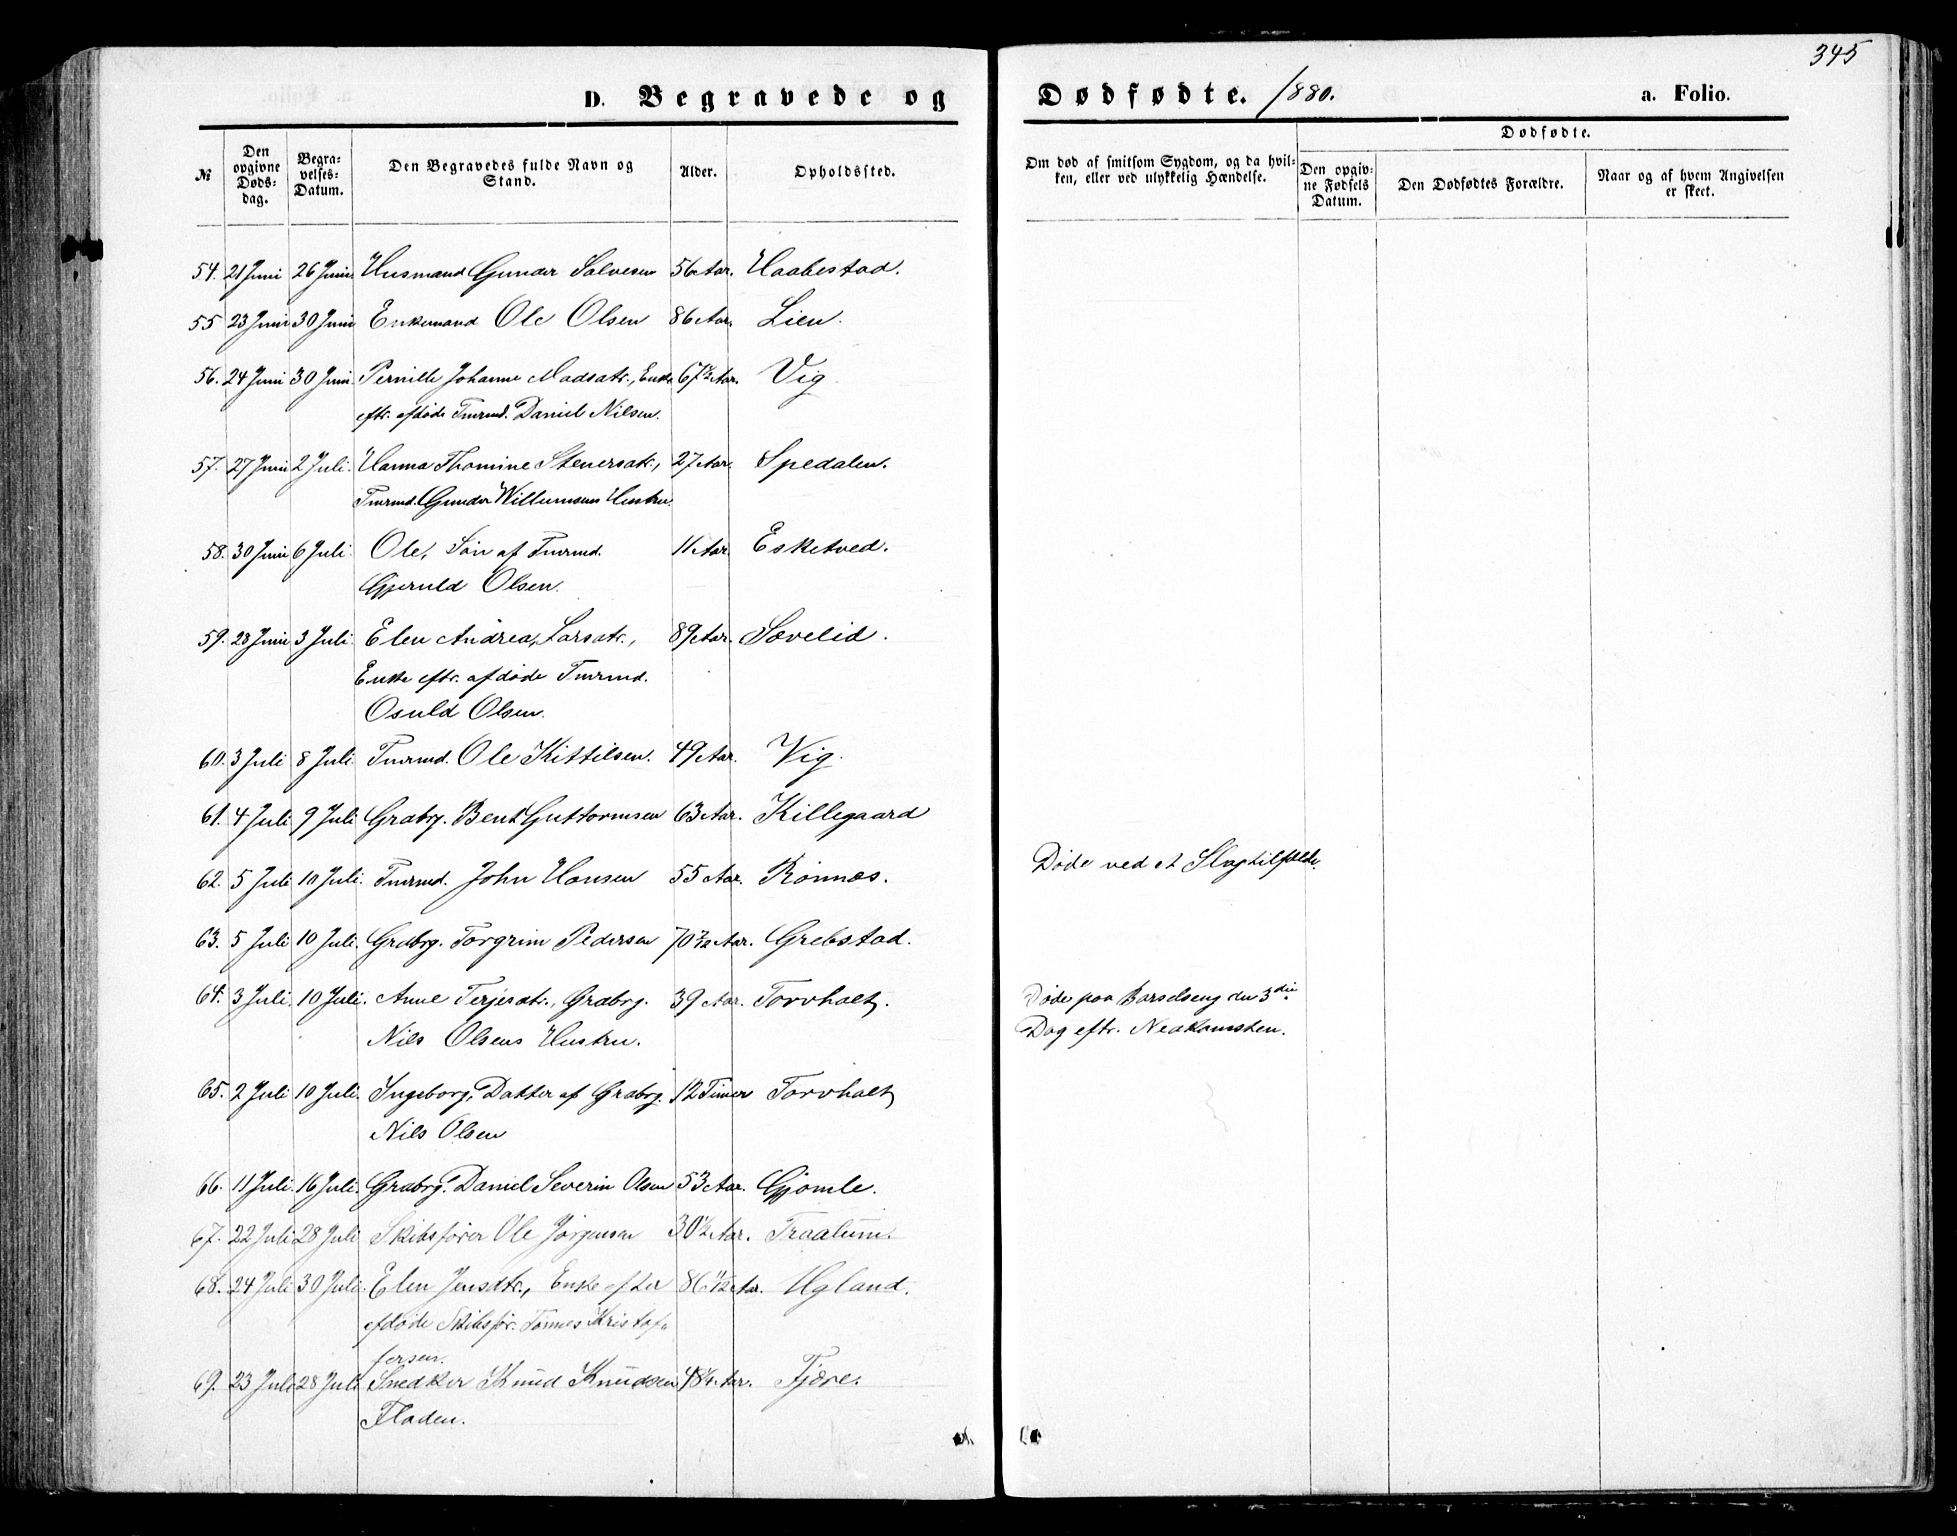 345
D. Begravede og Dødfødte. 1880. a. Folio.
№ Den opgivne Døds-dag. Begra-velses-Datum. Den Begravedes fulde Navn og Stand. Alder. Opholdssted. Om død af smitsom Sygdom, og da hvil-ken, eller ved ulykkelig Hændelse. Dødfødte. Den opgiv-ne Fødsels Datum. Den Dødfødtes Forældre. Naar og af hvem Angivelsen er skeet.
54. 21 Juni 26 Juni. Husmand Gunder Salvesen 56 Aar. Haabestad.
55 23 Juni 30 Juni Enkemand Ole Olsen 86 Aar. Lien.
56. 24 Juni 30 Juni. Pernille Johanne Madsdtr., Enke 67½ Aar. Vig
eftr. afdøde Tmrmd. Daniel Nilsen.
57. 27 Juni 2 Juli. Hanna Thomine Stenersdtr., 27 Aar. Spedalen.
Tmrmd. Gunder Willumsens Hustru.
58. 30 Juni 6 Juli. Ole, Søn af Tmrmd. 11 Aar. Esketved.
Gjeruld Olsen.
59. 28 Juni 3 Juli. Elen Andrea Larsdtr., 89 Aar. Sævelid.
Enke eftr. afdøde Tmrmd.
Osuld Olsen.
60. 3 Juli 8 Juli. Tmrmd. Ole Kittilsen. 49 Aar. Vig.
61. 4 Juli 9 Juli Grdbrg. Bent Guttormsen 63 Aar. Killegaard
62. 5 Juli 10 Juli. Tmrmd. John Hansen 55 Aar. Rønnæs. Døde ved et Slagtilfælde.
63. 5 Juli 10 Juli. Grdbrg. Torgrim Pedersen 70 7/12 Aar. Grebstad.
64. 3 Juli. 10 Juli. Anne Terjesdtr., Grdbrg. 39 Aar. Torvholt. Døde paa Barselseng den 3die
Nils Olsens Hustru. Dag eftr. Nedkomsten.
65. 2 Juli 10 Juli. Ingeborg, Datter af Grdbrg. 12 Timer Torvholt
Nils Olsen
66. 11 Juli. 16 Juli. Grdbrg. Daniel Severin Olsen 53 Aar. Gjømle.
67. 22 Juli 28 Juli Skibsfører Ole Jørgensen 30½ Aar. Traalum.
68. 24 Juli 30 Juli. Elen Jensdtr., Enke efter 86 ½ Aar. Ugland.
afdøde Skibsfør. Tønnes Kristof-
fersen.
69. 23 Juli 28 Juli Snedker Knud Knudsen 48¼ Aar. Fjære.
Fladen.